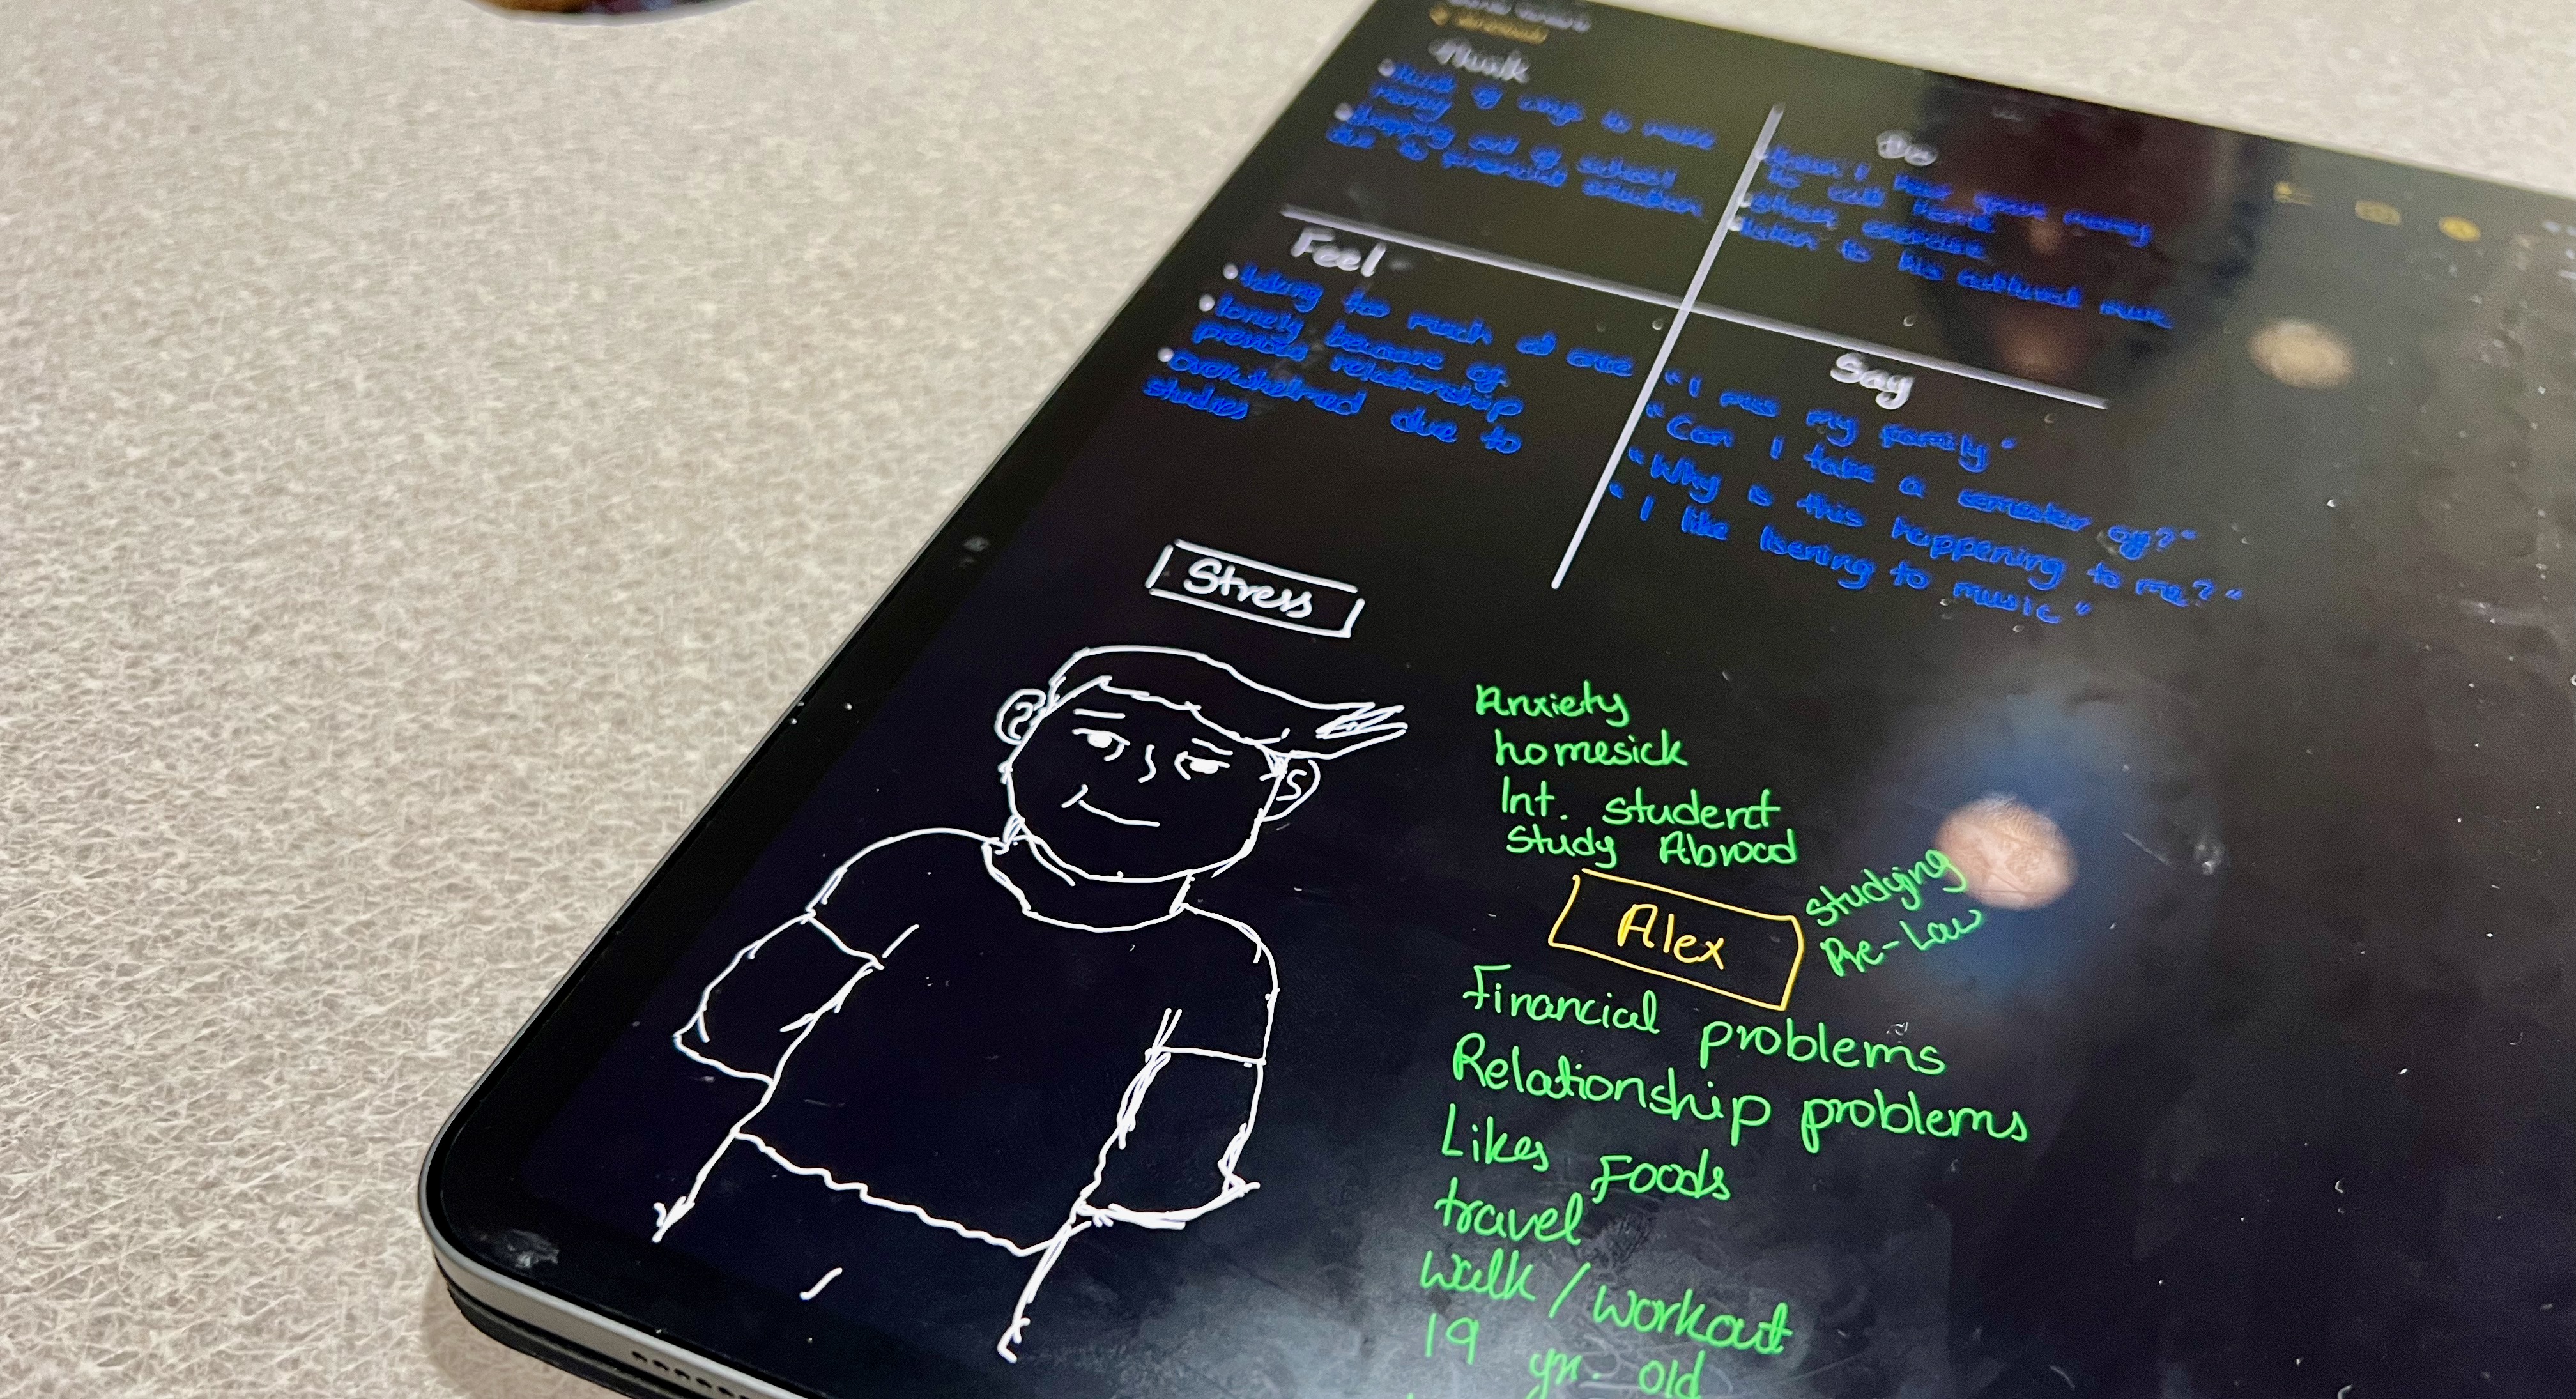 Think
think of ways to make
money
dropping out of school
due to financial situation
Do
to call home
others, exercise
listen to his cultural music
Feel
taking too much at once
lonely because of
previous relationship
overwhelmed due to
studies
Say
"I miss my family"
"Can I take a semester off?"
"Why is this happening to me?"
"I like lisening to music"
Stress
Anxiety
homesick
Int. student
Study Abroad
Alex
Studying
Pre-Law
Financial problems
Relationship problems
Likes Foods
travel
Walk / Workout
19 yr. old